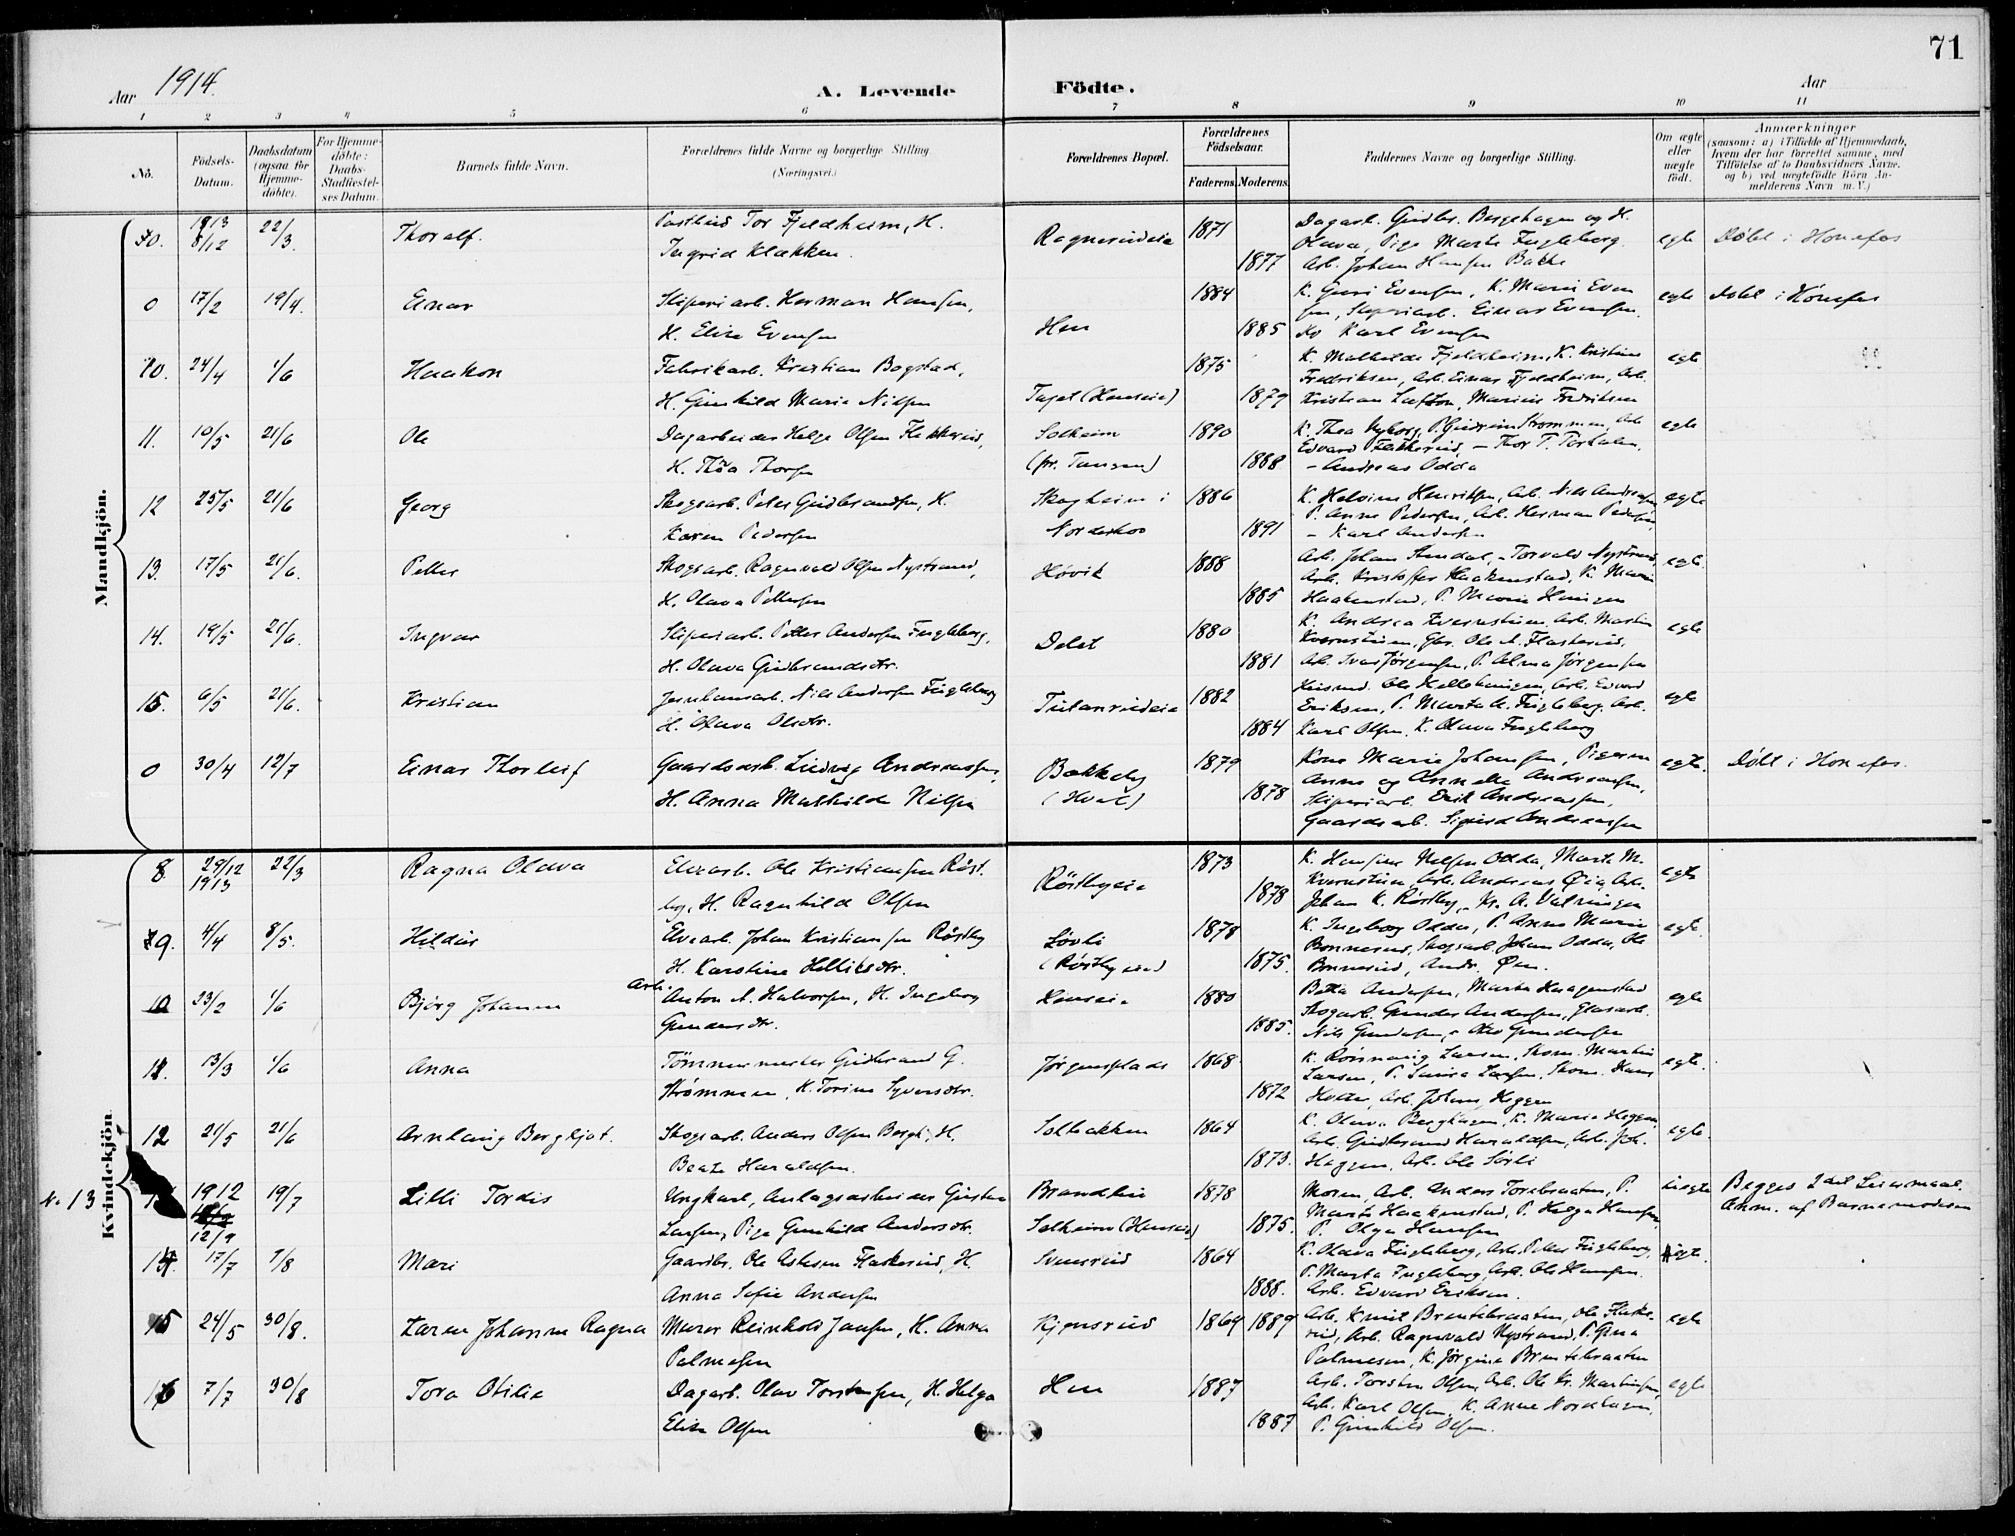 71
Aar 1914.
A. Levende Födte.
Aar
1 2 3 4 5 6 7 8 9 10 11
No.
Födsels-
Datum.
Daabsdatum
(ogsaa for
Hjemme-
döbte).
For Hjemme-
döbte:
Daabs-
Stadfæstel-
ses Datum.
Barnets fulde Navn.
Forældrenes fulde Navne og borgerlige Stilling
(Næringsvei.)
Forældrenes Bopæl.
Forældrenes
Födselsaar.
Faderens. Moderens.
Faddernes Navne og borgerlige Stilling.
Om ægte
eller
uægte
födt.
Anmærkninger
(saasom: a) i Tilfælde af Hjemmedaab,
hvem der har forrettet samme, med
Tilföielse af to Daabsvidners Navne.
og b) ved uægtefödte Börn An-
melderens Navn m. V.)
Mandkjön.
1913
8/12 22/3. Thoralf. Tor Fjeldheim, H.
Ingrid Klækken. Ragnerudeie 1871 1877
Dagarb. Gudbr. Bergehagen og H.
Olava, Pige Marte Fugleberg
Arb. Johan Hansen Bakke
egte Döbt i Hönefos
0 17/2 19/4. Einar Sliperiarb. Herman Hansen,
H. Elise Evensen Hen 1884 1885
K. Guri Evensen, K. Marie Even
sen, Sliperiarb. Einar Evensen.
Do Karl Evensen
egte Döbt i Hönefos
10. 24/4 1/6 Haakon Fabrikarb. Kristian Bogstad,
H. Gunhild Marie Nilsen Taget (Henseie) 1875 1879
K. Mathilde Fjeldheim, K. Kristine
Fredriksen, Arb. Einar Fjeldheim, Arb.
Kristian, Marius Fredriksen
egte
11. 10/5 21/6 Ole Dagarbeider Helge Olsen Flekkerud,
H. Thea Thorsen Solheim
(pr. Tangen) 1890 1888
K. Thea Nyborg, P. Strømmen, Arb
Edvard Flekkerud, – Thor T.
– Andreas Odda
egte
12 25/5 21/6 Georg Skogsarb. Peter Gudbrandsen, H.
Karen Pedersen Skogheim i
Norderhov 1886 1891
K. Helvine Henriksen, Arb. Nils Andersen
P. Anne Pedersen, Arb. Herman Pedersen
– Karl Andersen
egte
13. 17/5 21/6. Petter Skogsarb. Ragnvald Olsen Nystrand,
H. Olava Pettersen Hövik 1888 1885
Arb. Johan, – Torvald Nystrand,
Arb. Kristoffer Haakenstad, K. Marie
Haakenstad, P. Marie
egte.
14. 19/5 21/6. Ingvar Sliperiarb. Petter Andersen Fugleberg,
H. Olava Gudbrandsdtr. Delet 1880 1881
K. Andrea Kvernstuen, Arb. Martin
Kvernstuen, Gbr. Ole A. Flaskerud,
Arb. Ivar Jørgensen, P. Alma Jørgensen
egte
15. 6/5 21/6. Kristian Jernbanearb. Nils Andersen Fugleberg
H. Olava Olsdtr. Tulanrudeie 1882 1884
Ole, Arb. Edvard
Eriksen, P. Marta A. Fugleberg. Arb.
Karl Olsen, K. Olava Fugleberg
egte
0 30/4 12/7 Einar Thorleif Gaardsarb. Ludvig Andreassen,
H. Anna Mathilde Nilsen Bakkeby
(Hval) 1879 1878
Kone Marie Johansen, Pigerne
Anna og Annette Andreassen,
Sliperiarb. Erik Andreassen,
Gaardsarb. Sigurd Andreassen
egte. Döbt i Hönefos.
Kvindekjön.
8. 29/12
1913 22/3 Ragna Olava Elvearb. Ole Kristiansen Røst.
by, H. Ragnhild Olsen Røstbyeie 1873 1878
K. Hansine Nilsen Odda, Marte M.
Kvernstuen, Arb. Andreas Øia, Arb.
Johan K. Røstby, Kr. A.
egte
9. 4/4 8/5. Hildur Elvearb. Johan Kristiansen Røstby
H. Karoline Helliksdtr. Løvli
(Røstbyeie) 1878 1875.
K. Ingeborg Odda, P. Anne Marie
Bonnerud, Skogsarb. Johan Odda, Ole
Bonnerud, Andr. Øen.
egte.
10 23/2 1/6 Bjørg Johanne Arb. Anton A. Halvorsen, H. Ingeborg
Gundersdtr. Henseie 1880 1885.
Betta Andersen, Marta Haagenstad
Skogarb. Gunder Andersen, Glasarb.
Nils Gundersen, Otto Gundersen
egte
11. 13/3 1/6 Anna Tømmermester Gudbrand G.
Strømmen, K. Torine Syversdtr. Jørgensplads 1868 1872
K. Rønnaug Larsen, Skom. Martin
Larsen, P. Larsen, Skom. Hans
Hvattum, Arb. Johan Heggen
egte.
12 21/5 21/6 Arnhaug Bergljot. Skogsarb. Anders Olsen Bergh, H.
Beate Haraldsen. Solbakken 1864 1873.
K. Olava Berghagen, K. Maria Heggen,
Arb. Gudbrand Haraldsen, Arb. Joh.
Heggen, Arb. Ole Sørli
egte.
No 13 1912
12/9 19/7 Lilli Tordis Ungkarl, Anlægsarbeider Gustav
Larsen, Pige Gunhild Andersdtr. Brandlie
Solheim (Hensrud) 1878 1875.
Moren, Arb. Anders Torebraaten, P.
Marte Haakenstad, P. Helga Hansen,
P. Olga Hansen
uegte Begges 2det Leiermaal.
Anm. af Barnemoderen
14. 17/7 9/8 Mari Gaardbr. Ole Flaskerud, H.
Anna Sofie Andersen Svensrud 1864 1888.
K. Olava Fugleberg, Arb. Peter Fugleberg,
P. Marta Fugleberg, Arb. Ole Hansen.
Arb. Edvard Eriksen.
egte.
15 24/5 30/8. Karen Johanne Ragna Murer Reinhold Jansen, H. Anna
Palmesen Kjensrud 1864 1889
Arb. Knut Brentebraaten, Ole Flaske-
rud, Arb. Ragnvald Nystrand, P. Gina
Palmesen, K. Jørgine Brentebraaten
egte
16 7/7 30/8 Tora Otilie Dagarb. Olav Torstensen, H. Helga
Elise Olsen Hen 1887 1887
Arb. Torsten Olsen, Arb. Ole Kr. Martinsen,
Arb. Karl Olsen, K. Anne Nordhagen,
P. Gunhild Olsen.
egte